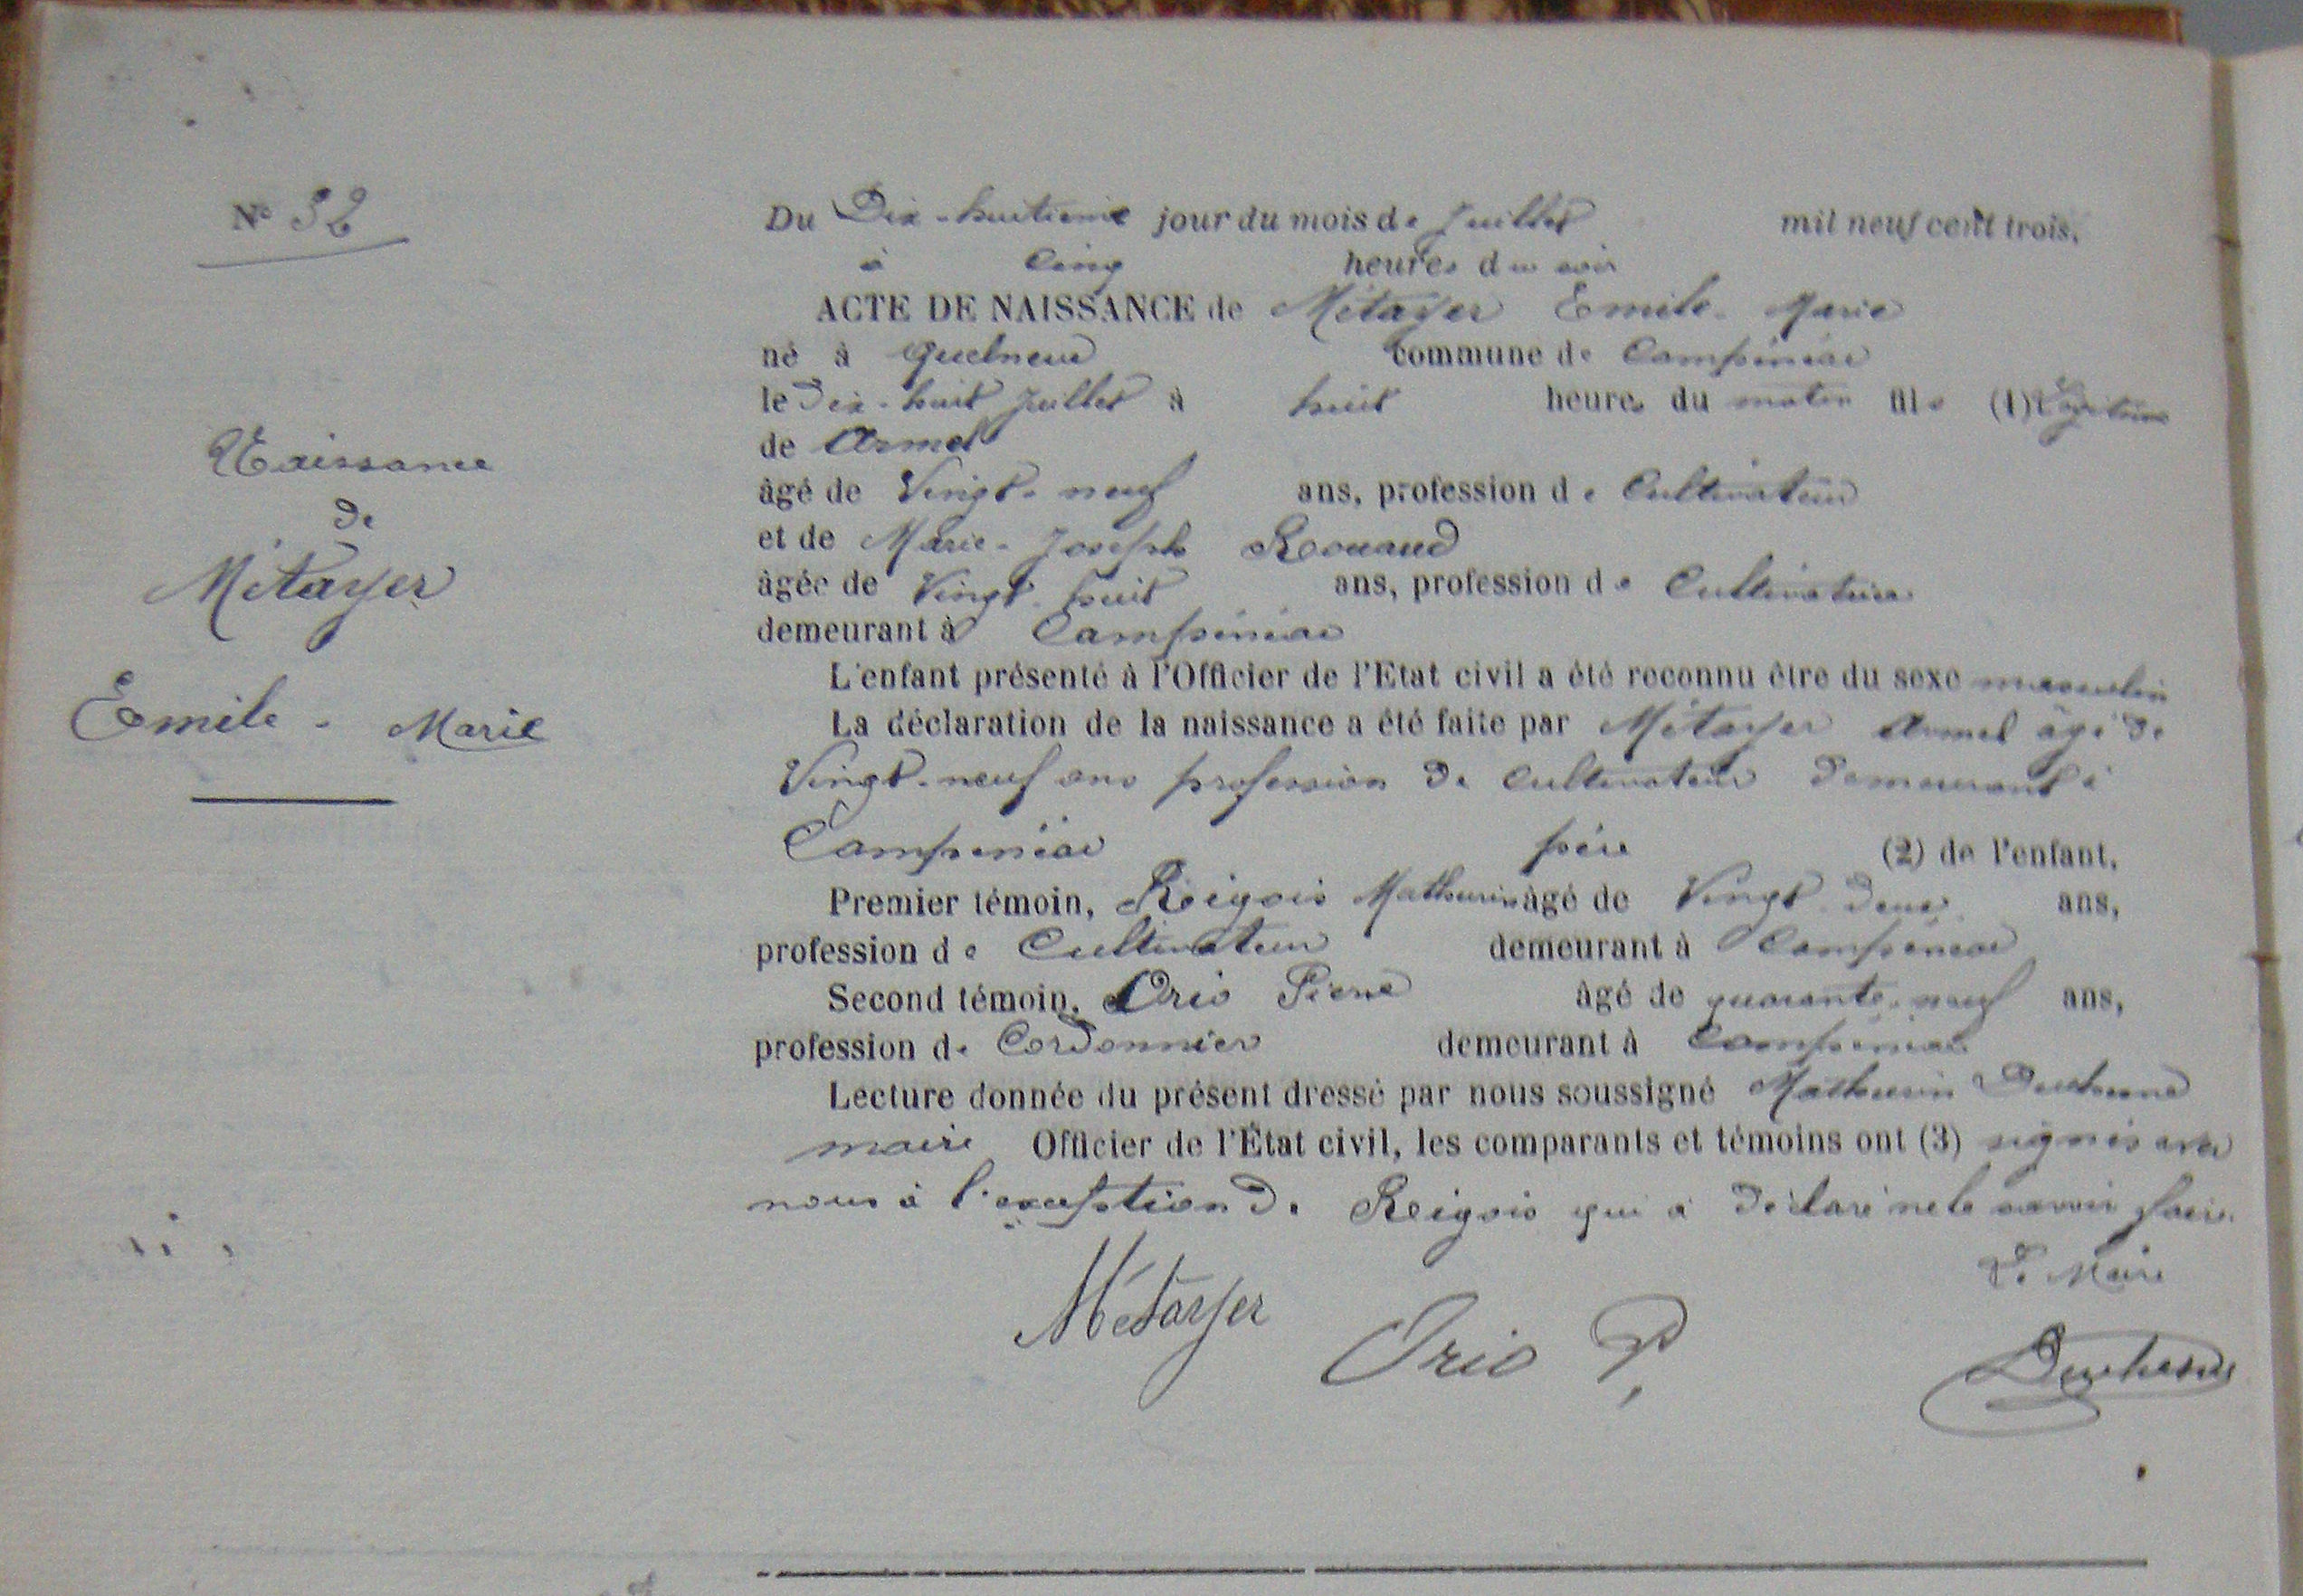 Nº 32
Naissance
de
Métayer
Emile - Marie
Du Dix-huitième jour du mois de Juillet mil neuf cent trois,
à Cinq heures du soir
ACTE DE NAISSANCE de Métayer Emile Marie
né à Quelneuc commune de Campénéac
le Dix-huit Juillet à huit heures du matin fils (1) Légitime
de Armel
âgé de Vingt-neuf ans, profession de Cultivateur
et de Marie-Joseph Rouaud
âgée de Vingt-huit ans, profession de Cultivatrice
demeurant à Campénéac
L'enfant présenté à l'Officier de l'Etat civil a été reconnu être du sexe masculin
La déclaration de la naissance a été faite par Métayer Armel âgé de
Vingt-neuf ans profession de Cultivateur demeurant à
Campénéac père (2) de l'enfant,
Premier témoin, Reigois Mathurin âgé de Vingt-deux ans,
profession de Cultivateur demeurant à Campénéac
Second témoin, Orio Pierre âgé de quarante-neuf ans,
profession de Cordonnier demeurant à Campénéac
Lecture donnée du présent dressé par nous soussigné Mathurin Duchesne
maire Officier de l'État civil, les comparants et témoins ont (3) signés avec
nous à l'exception de Reigois qui a déclaré ne le savoir faire.
Le Maire
Métayer Orio P. Duchesne